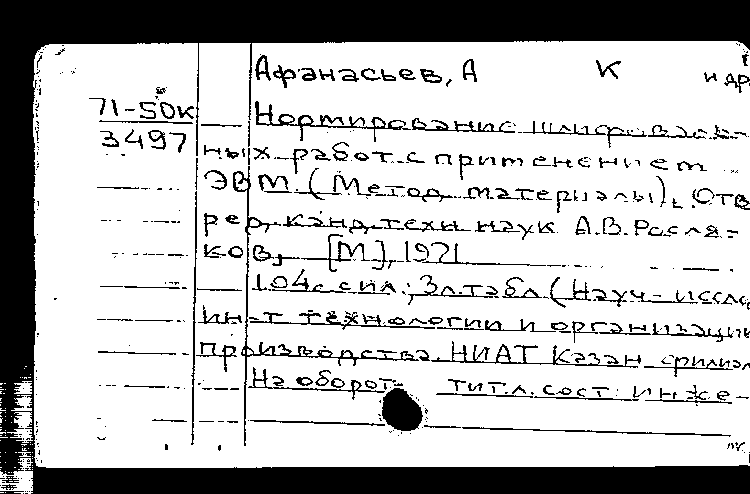 Афанасьев, А К и др
71-50к
3497
Нормирование шлифоваль-
ных работ с применением
ЭВМ. (Метод. материалы). Отв
ред. канд. техн. наук А.В. Росля-
ков. [М], 1971
104с с ил.; 3л. табл (Науч-иссле
ин-т технологии и организации
производства. НИАТ Казан. филиал
На оборот. тит.л. сост: инже-